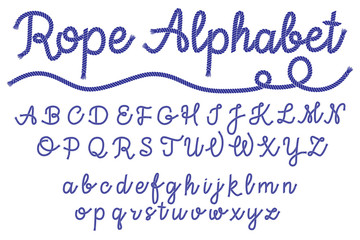 Rope Alphabet
A B C D E F G H I J K L M N
O P Q R S T U V W X Y Z
a b c d e f g h i j k l m n
o p q r s t u v w x y z